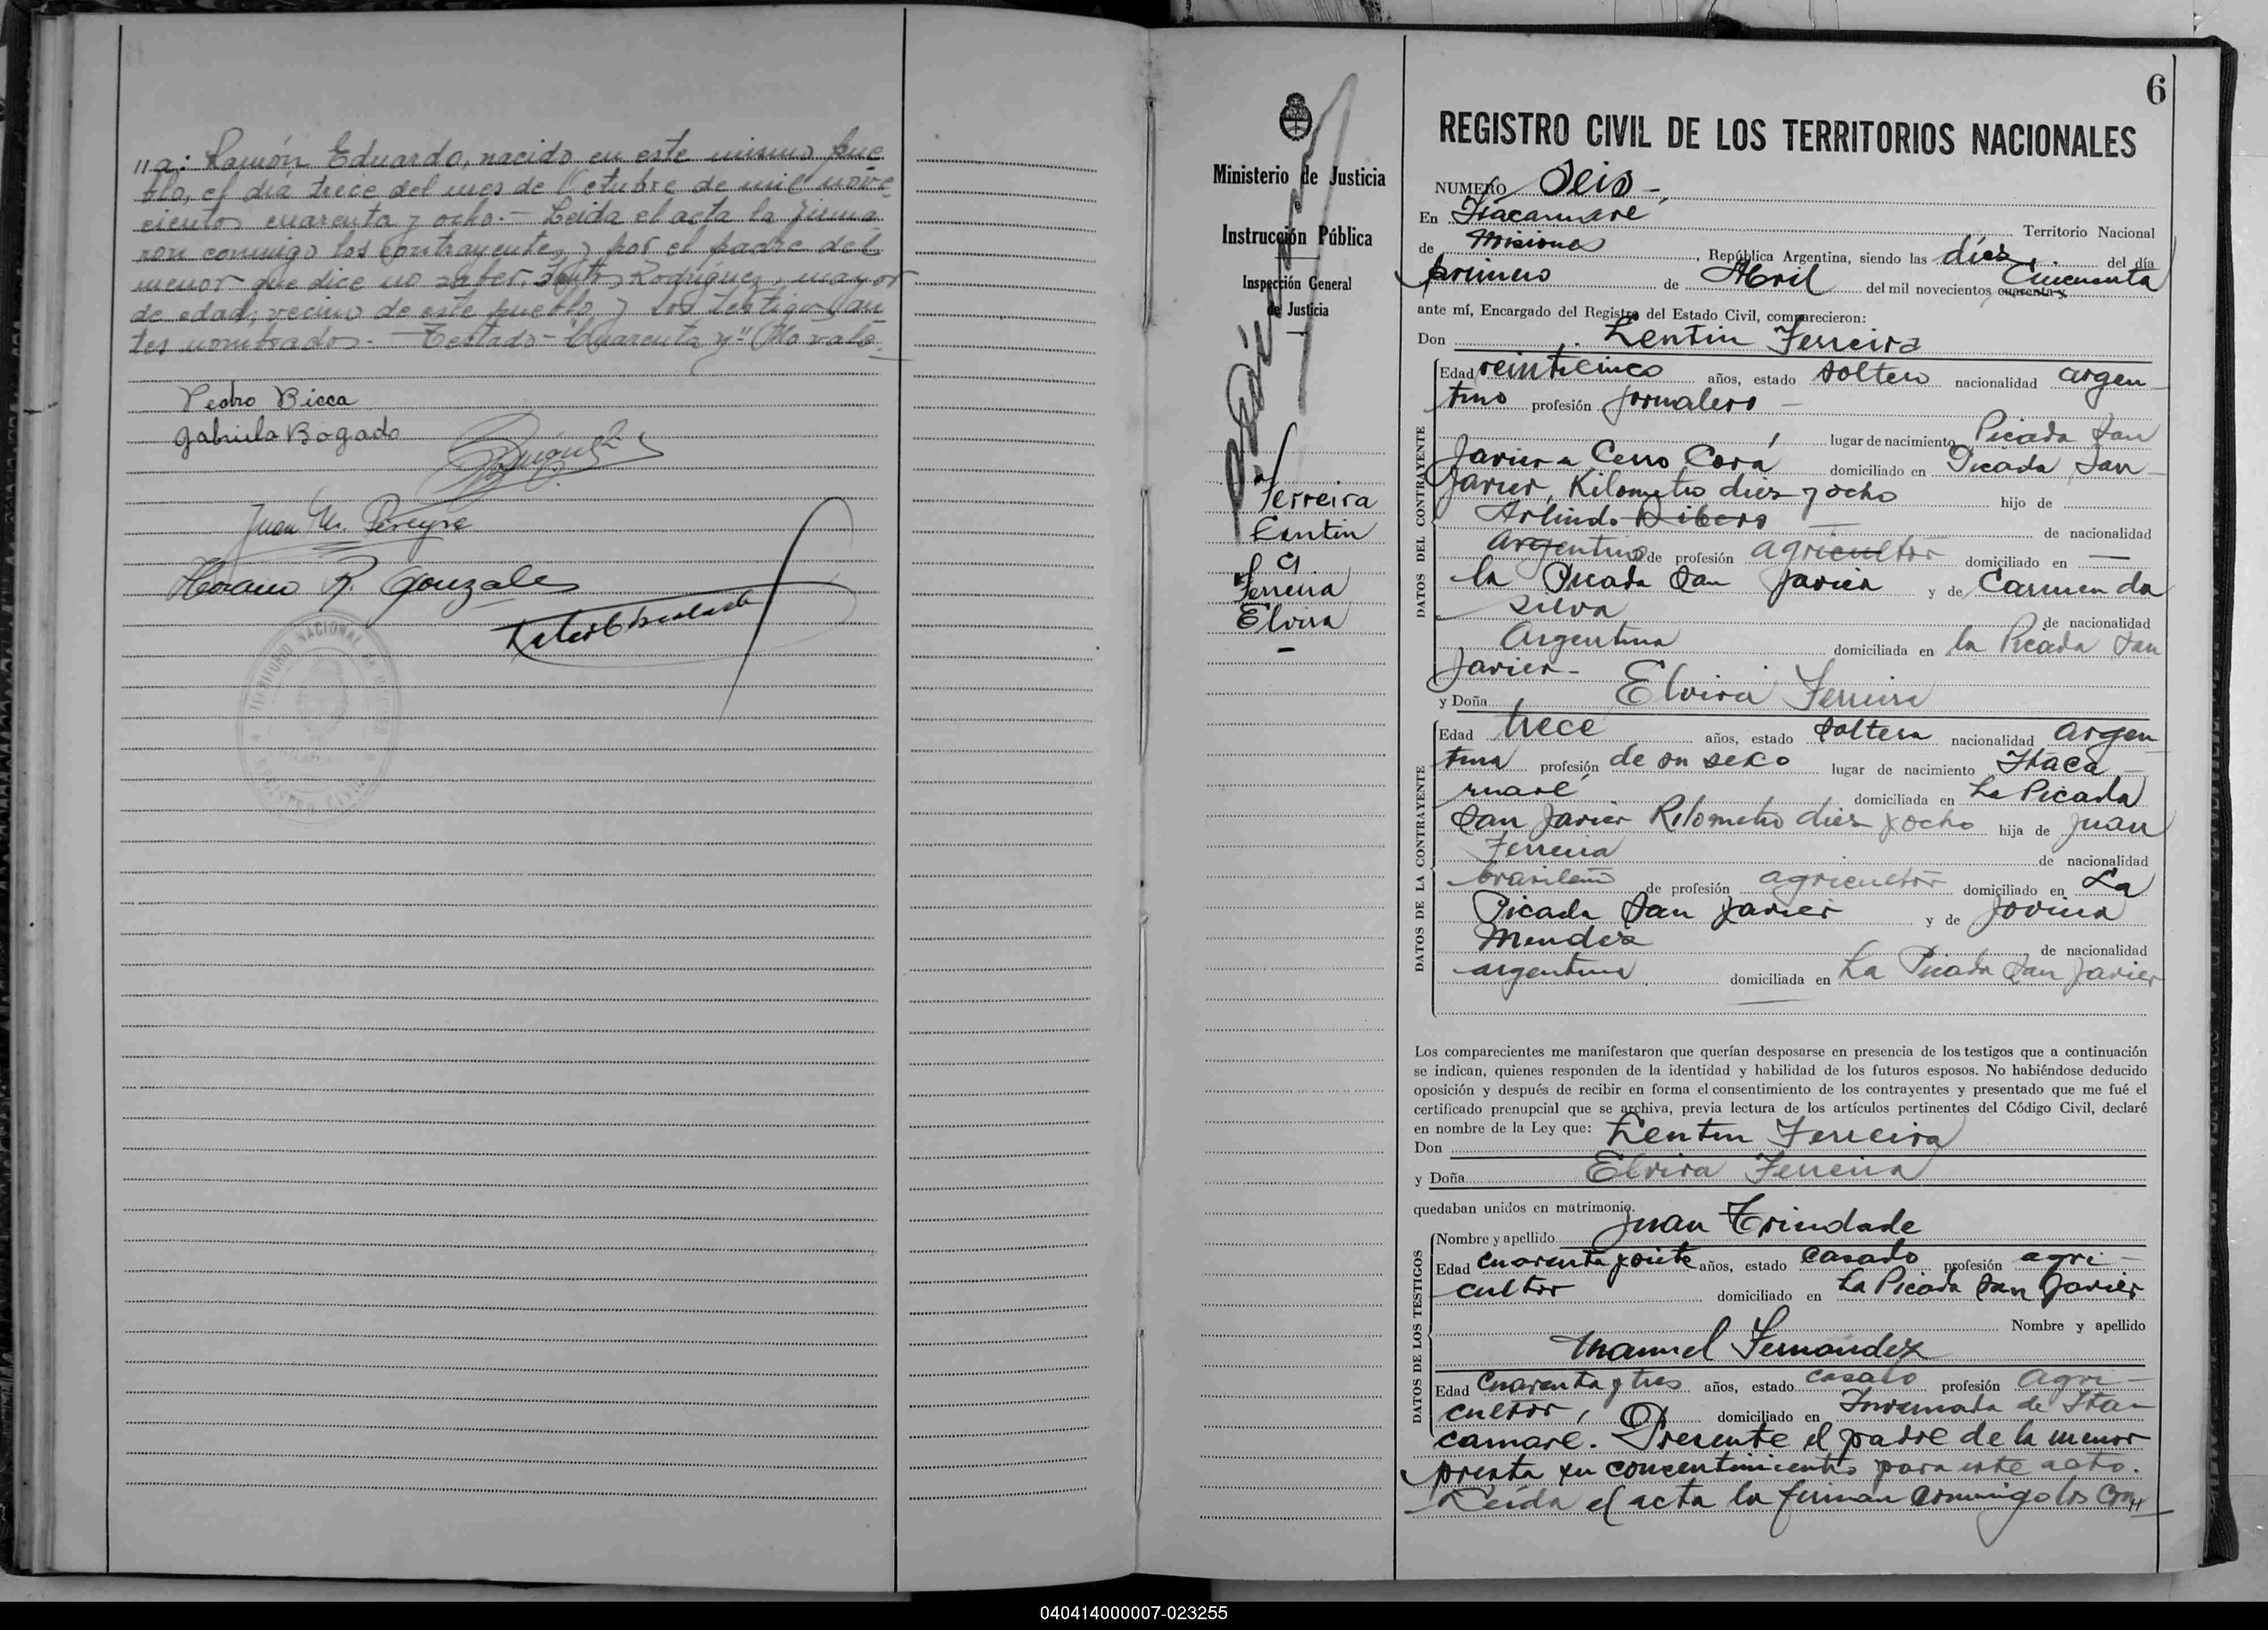 "a: Ramón Eduardo, nacido en este mismo pue
blo, el día trece del mes de Octubre de mil nove
cientos cuarenta y ocho.- Leida el acta la firma
ron conmigo los contrayentes y por el padre del
menor que dice no saber, Rodriguez, mayor
de edad, vecino de este pueblo y los testigos an
tes nombrados. - Testado- Cuarenta y" (No vale
Pedro Bicca
Gabriela Bogado
Juan M. Pereyra
Horacio R. Gonzales
TERRITORIO NACIONAL DE MISIONES
REGISTRO CIVIL
Ministerio de Justicia
e
Instrucción Pública
Inspección General
de Justicia
Ferreira
Lentin
Ferreira
Elvira
6
REGISTRO CIVIL DE LOS TERRITORIOS NACIONALES
NUMERO Seis -
En Itacaruaré Territorio Nacional
de Misiones, República Argentina, siendo las diez del día
primero de Abril del mil novecientos cuarenta y Cincuenta
ante mí, Encargado del Registro del Estado Civil, comparecieron:
Don Lentin Ferreira
DATOS DEL CONTRAYENTE
Edad veinticinco años, estado soltero nacionalidad argen
tino profesión jornalero -
lugar de nacimiento Picada San
Javier a Cerro Corá domiciliado en Picada San
Javier, Kilometro dies y ocho hijo de
Arlindo Ribero de nacionalidad
Argentino de profesión agricultor domiciliado en
la Picada San Javier y de Carmen da
Silva de nacionalidad
Argentina domiciliada en la Picada San
Javier-
y Doña Elvira Ferreira
DATOS DE LA CONTRAYENTE
Edad trece años, estado soltera nacionalidad argen
tina profesión de su sexo lugar de nacimiento Itaca-
ruaré domiciliada en La Picada
San Javier Kilometro dies y ocho hija de Juan
Ferreira de nacionalidad
brasileño de profesión agricultor domiciliado en La
Picada San Javier y de Jovina
Mendez de nacionalidad
argentina domiciliada en La Picada San Javier
Los comparecientes me manifestaron que querían desposarse en presencia de los testigos que a continuación
se indican, quienes responden de la identidad y habilidad de los futuros esposos. No habiéndose deducido
oposición y después de recibir en forma el consentimiento de los contrayentes y presentado que me fué el
certificado prenupcial que se archiva, previa lectura de los artículos pertinentes del Código Civil, declaré
en nombre de la Ley que:
Don Lentin Ferreira
y Doña Elvira Ferreira
quedaban unidos en matrimonio.
DATOS DE LOS TESTIGOS
Nombre y apellido Juan Trindade
Edad Cuarenta y siete años, estado Casado profesión agri-
cultor domiciliado en La Picada San Javier
Nombre y apellido
Manuel Fernandez
Edad Cuarenta y tres años, estado casado profesión Agri-
cultor, domiciliado en Invernada de Ita-
caruare. Presente el padre de la menor
presta su concentimiento para este acto.
Leída el acta la firman conmigo los con"
040414000007-023255